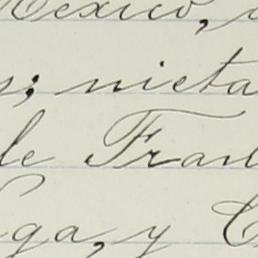 Mexico,
s; nieta
de Fran
ga, y